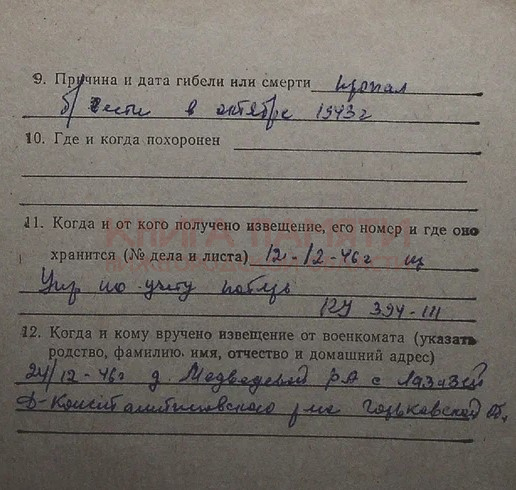 9. Причина и дата гибели или смерти пропал
б/вести в октябре 1943г
10. Где и когда похоронен
11. Когда и от кого получено извещение, его номер и где оно
КНИГА ПАМЯТИ
хранится (№ дела и листа) 12-12-46г
Упр по учету
394-III
12. Когда и кому вручено извещение от военкомата (указать
родство, фамилию, имя, отчество и домашний адрес)
24/12-46г д. Медведевой с
Д-Константиновского р-на Горьковской об.